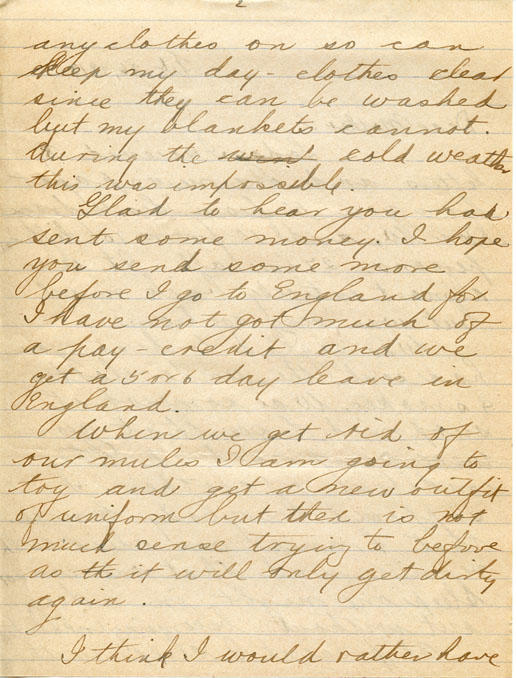 2
any clothes on so can
keep my day-clothes clean
since they can be washed
but my blankets cannot.
During the wint cold weather
this was impossible.
Glad to hear you had
sent some money. I hope
you send some more
before I go to England for
I have not got much of
a pay-credit and we
get a 5 or 6 day leave in
England.
When we get rid of
our mules I am going to
try and get a new outfit
of uniform but ther is not
much sense trying to before
as th it will only get dirty
again.
I think I would rather have